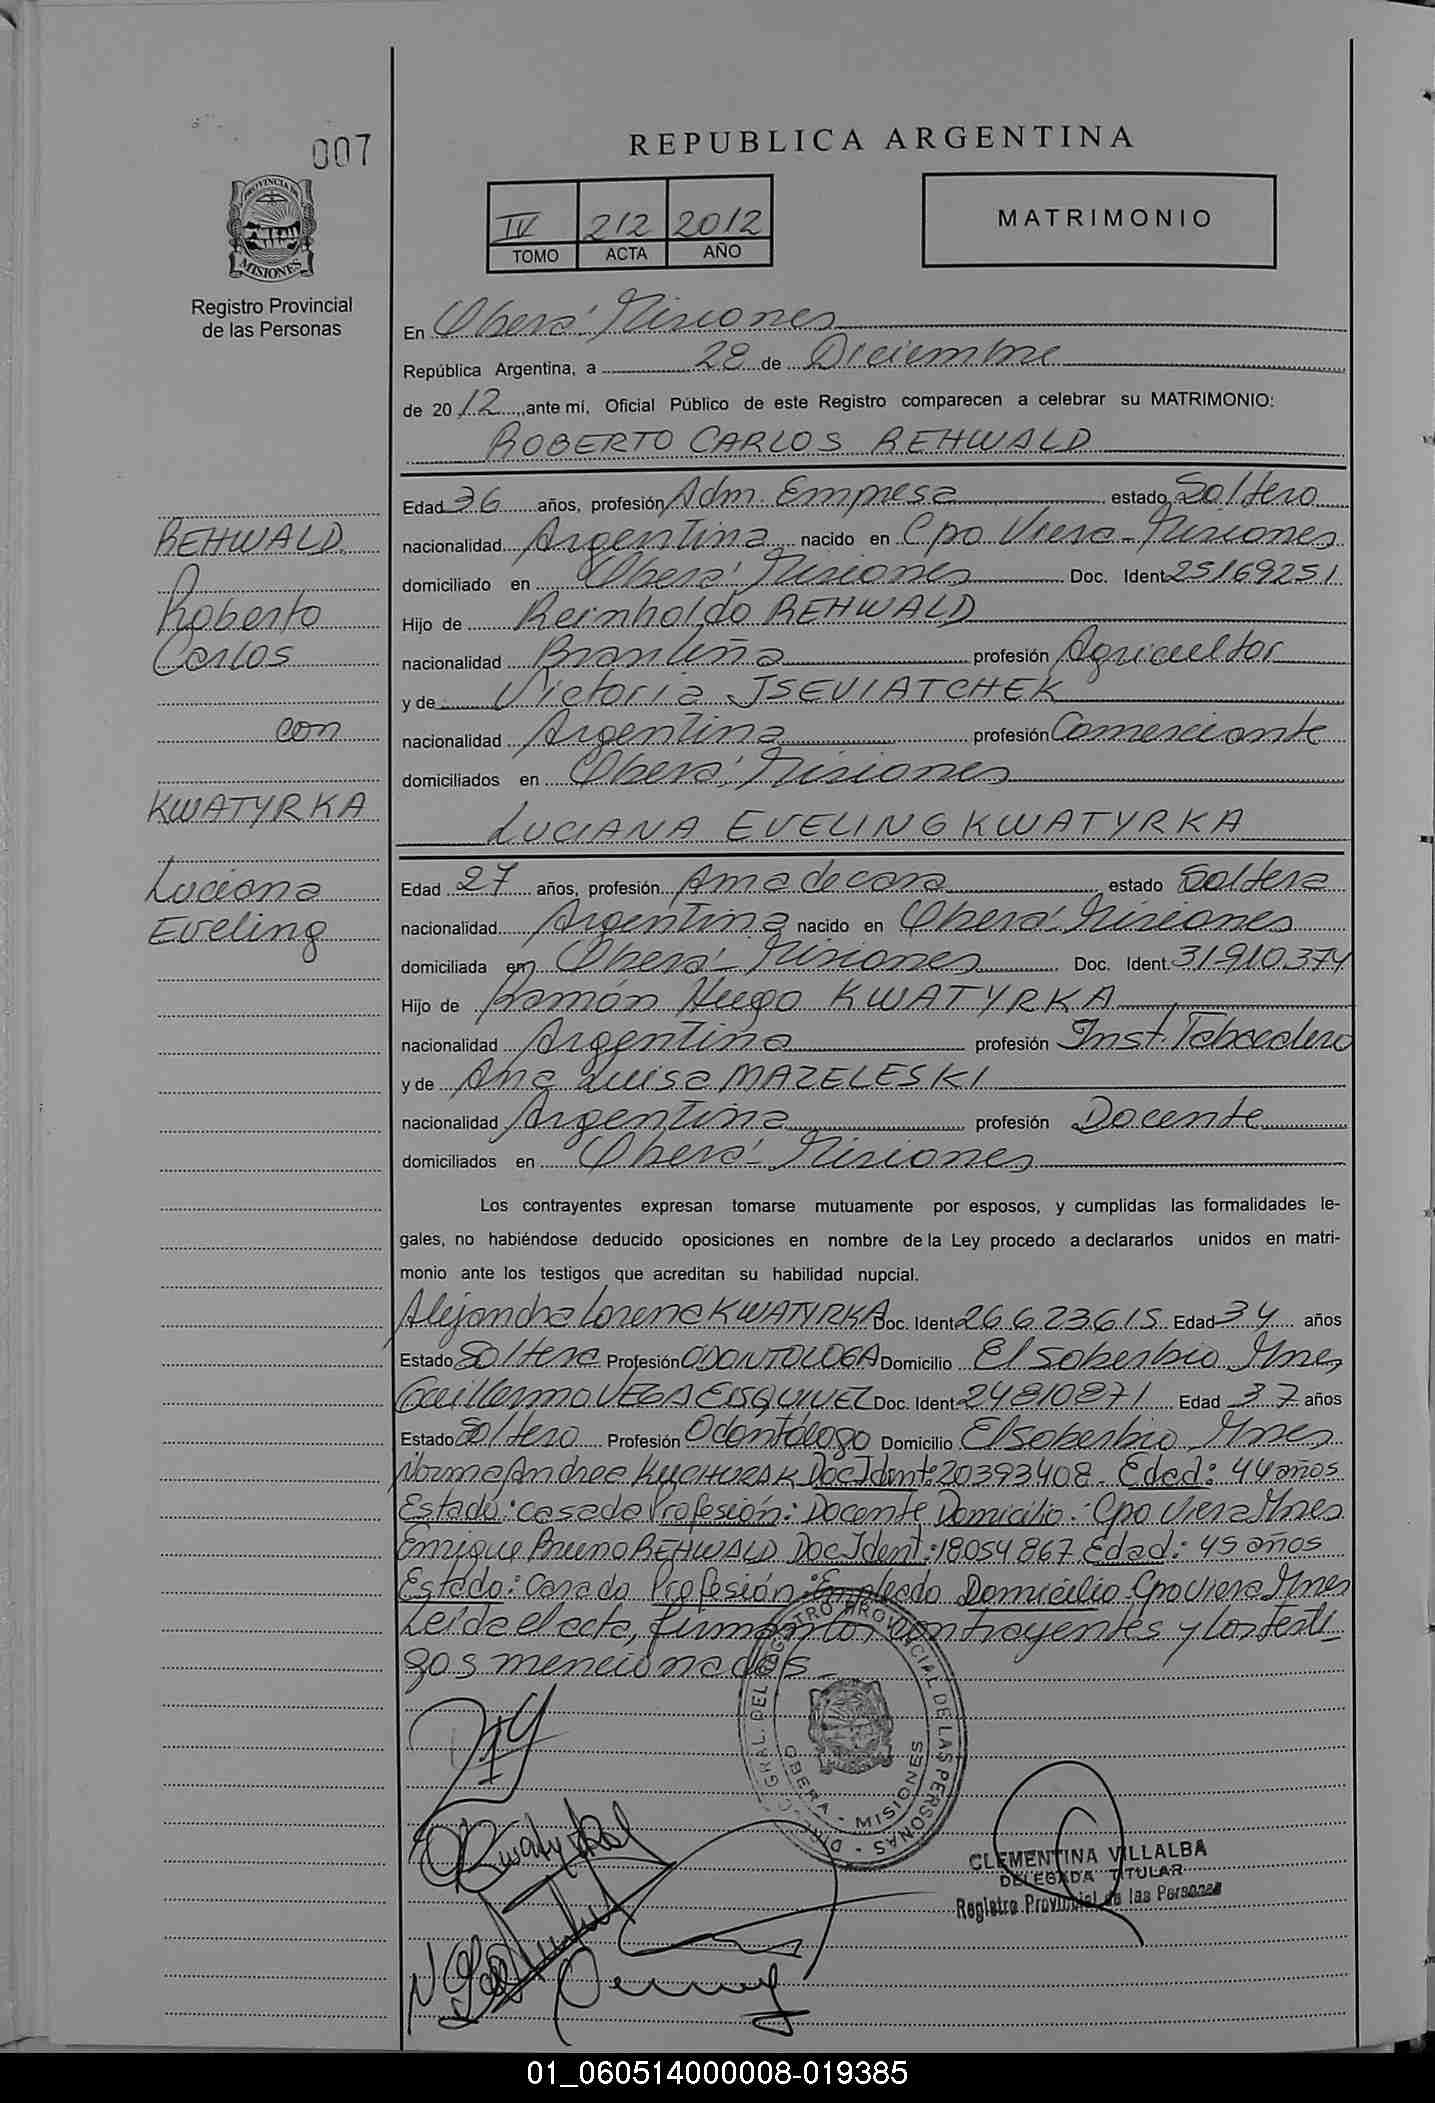 007
REPUBLICA ARGENTINA
PROVINCIA DE
MISIONES
Registro Provincial
de las Personas
IV 212 2012
TOMO ACTA AÑO
MATRIMONIO
En Oberá Misiones
República Argentina, a 28 de Diciembre
de 2012, ante mi, Oficial Público de este Registro comparecen a celebrar su MATRIMONIO:
ROBERTO CARLOS REHWALD
Edad 36 años, profesión Adm. Empresa estado Soltero
REHWALD
nacionalidad Argentina nacido en Cpo Viera - Misiones
domiciliado en Oberá Misiones Doc. Ident 25169251
Roberto
Hijo de Reinholdo REHWALD
Carlos
nacionalidad Brasileña profesión Agricultor
y de Victoria JSEVIATCHEK
con
nacionalidad Argentina profesión Comerciante
domiciliados en Oberá Misiones
KWATYRKA
LUCIANA EVELING KWATYRKA
Luciana
Edad 27 años, profesión Ama de casa estado Soltera
Eveling
nacionalidad Argentina nacido en Oberá - Misiones
domiciliada en Oberá - Misiones Doc. Ident. 31.910.374
Hijo de Ramón Hugo KWATYRKA
nacionalidad Argentina profesión Inst. Tabacalero
y de Ana Luisa MAZELESKI
nacionalidad Argentina profesión Docente
domiciliados en Oberá - Misiones
Los contrayentes expresan tomarse mutuamente por esposos, y cumplidas las formalidades le-
gales, no habiéndose deducido oposiciones en nombre de la Ley procedo a declararlos unidos en matri-
monio ante los testigos que acreditan su habilidad nupcial.
Alejandra Lorena KWATYRKA Doc. Ident 26623615 Edad 34 años
Estado Soltera Profesión ODONTOLOGA Domicilio El Soberbio Mnes
Guillermo VEGA ESQUIVEL Doc. Ident 24810871 Edad 37 años
Estado Soltero Profesión Odontólogo Domicilio El Soberbio Mnes
Norma Andrea KUCHURAK Doc Ident: 20393408 - Edad: 44 años
Estado: casada Profesión: Docente Domicilio: Cpo Viera Mnes
Enrique Bruno REHWALD Doc Ident: 18054867 Edad: 45 años
Estado: Casado Profesión: Empleado Domicilio Cpo Viera Mnes
Leida el acta, firman los contrayentes y los testi-
gos mencionados -
DIRECC. GRAL. DEL REGISTRO PROVINCIAL DE LAS PERSONAS -
OBERA - MISIONES
CLEMENTINA VILLALBA
DELEGADA TITULAR
Registro Provincial de las Personas
01_060514000008-019385